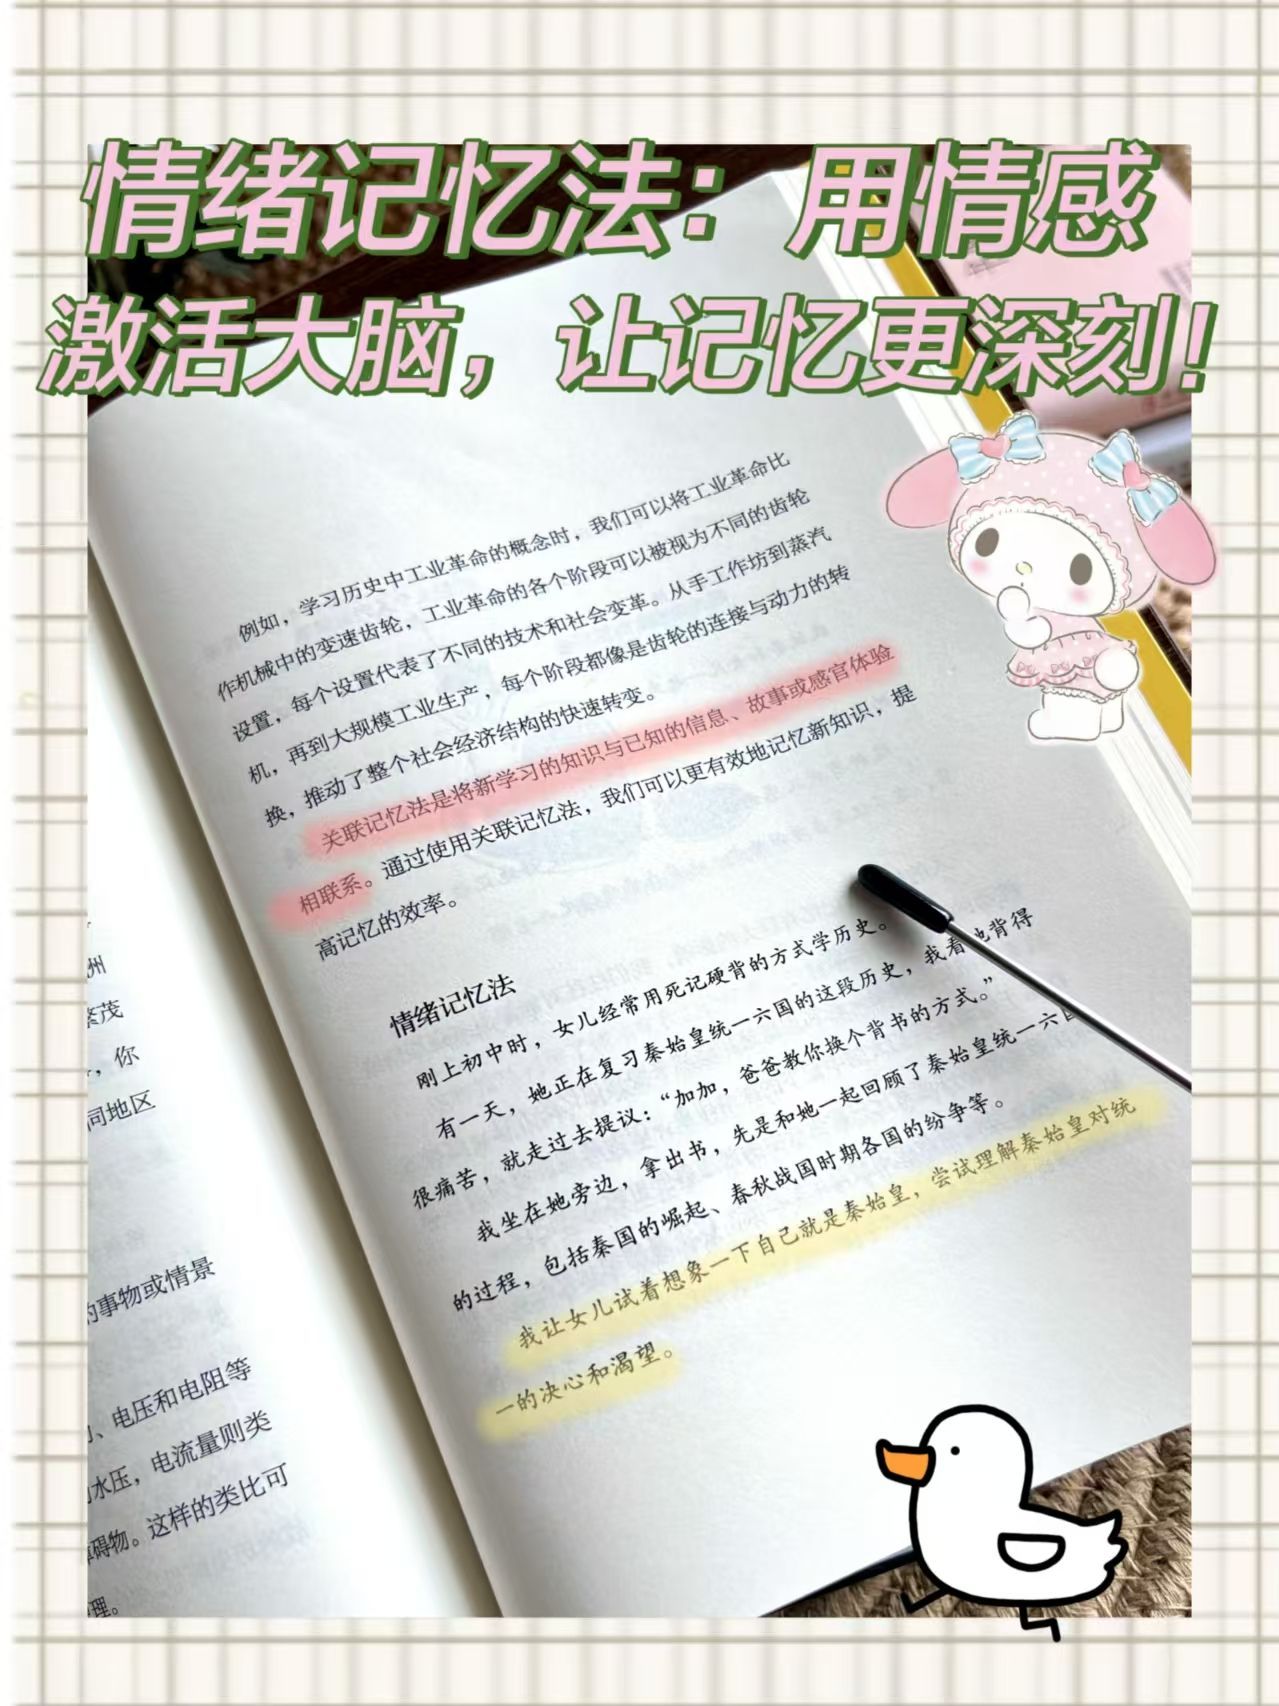 情绪记忆法：用情感
激活大脑，让记忆更深刻！
例如，学习历史中工业革命的概念时，我们可以将工业革命比
作机械中的变速齿轮，工业革命的各个阶段可以被视为不同的齿轮
设置，每个设置代表了不同的技术和社会变革。从手工作坊到蒸汽
机，再到大规模工业生产，每个阶段都像是齿轮的连接与动力的转
换，推动了整个社会经济结构的快速转变。
关联记忆法是将新学习的知识与已知的信息、故事或感官体验
相联系。通过使用关联记忆法，我们可以更有效地记忆新知识，提
高记忆的效率。
情绪记忆法
刚上初中时，女儿经常用死记硬背的方式学历史。
有一天，她正在复习秦始皇统一六国的这段历史，我看她背得
很痛苦，就走过去提议：“加加，爸爸教你换个背书的方式。”
我坐在她旁边，拿出书，先是和她一起回顾了秦始皇统一六国
的过程，包括秦国的崛起、春秋战国时期各国的纷争等。
我让女儿试着想象一下自己就是秦始皇，尝试理解秦始皇对统
一的决心和渴望。
洲
繁茂
，你
同地区
的事物或情景
、电压和电阻等
水压，电流量则类
障碍物。这样的类比可
理。